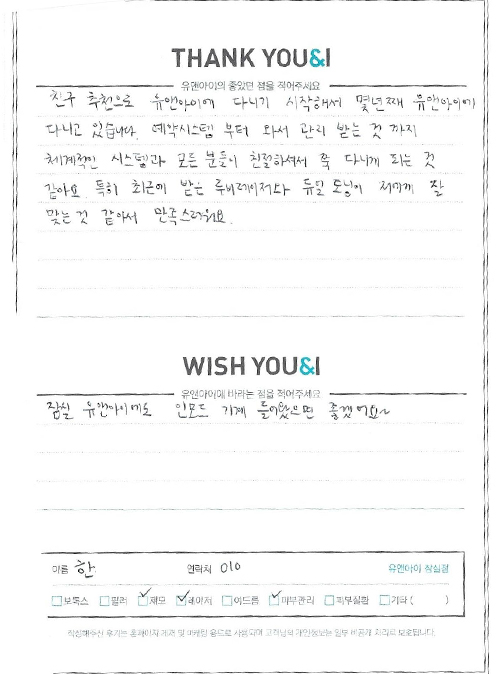 THANK YOU&I
유앤아이의 좋았던 점을 적어주세요
친구 추천으로 유앤아이에 다니기 시작해서 몇년째 유앤아이에
다니고 있습니다. 예약시스템 부터 와서 관리 받는 것 까지
체계적인 시스템과 모든 분들이 친절하셔서 쭉 다니게 되는 것
같아요. 특히 최근에 받은 루비레이저와 듀얼 토닝이 저에게 잘
맞는 것 같아서 만족스러워요.
WISH YOU&I
유앤아이에 바라는 점을 적어주세요
잠실 유앤아이에도 인모드 기계 들어왔으면 좋겠어요~
이름 한 연락처 010 유앤아이 잠실점
보톡스 필러 제모 레이저 여드름 피부관리 피부질환 기타 ( )
작성해주신 후기는 홈페이지 게재 및 마케팅 용도로 사용되며 고객님의 개인정보는 일부 비공개 처리로 보호됩니다.